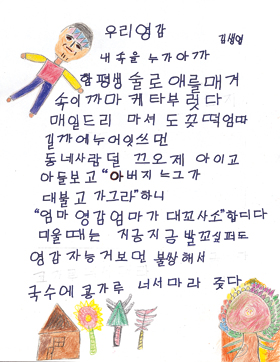 우리영감
김생엽
내 속을 누가 아까
한평생 술로 애를 매겨
속이 까마 케 타부럿다
매일 드리 마셔 도 끗떡 엄따
길까에 누어 잇쓰먼
동네사람 덜 끄오제 아이고
아들보고 "아버지 누그가
대불고 가그라" 하니
"엄마 영감 엄마가 대꼬사소" 합디다
미울때는 지금지금 발꼬싶퍼도
영감 자능거보먼 불쌍해서
국수에 콩가루 너서 마라 줏다